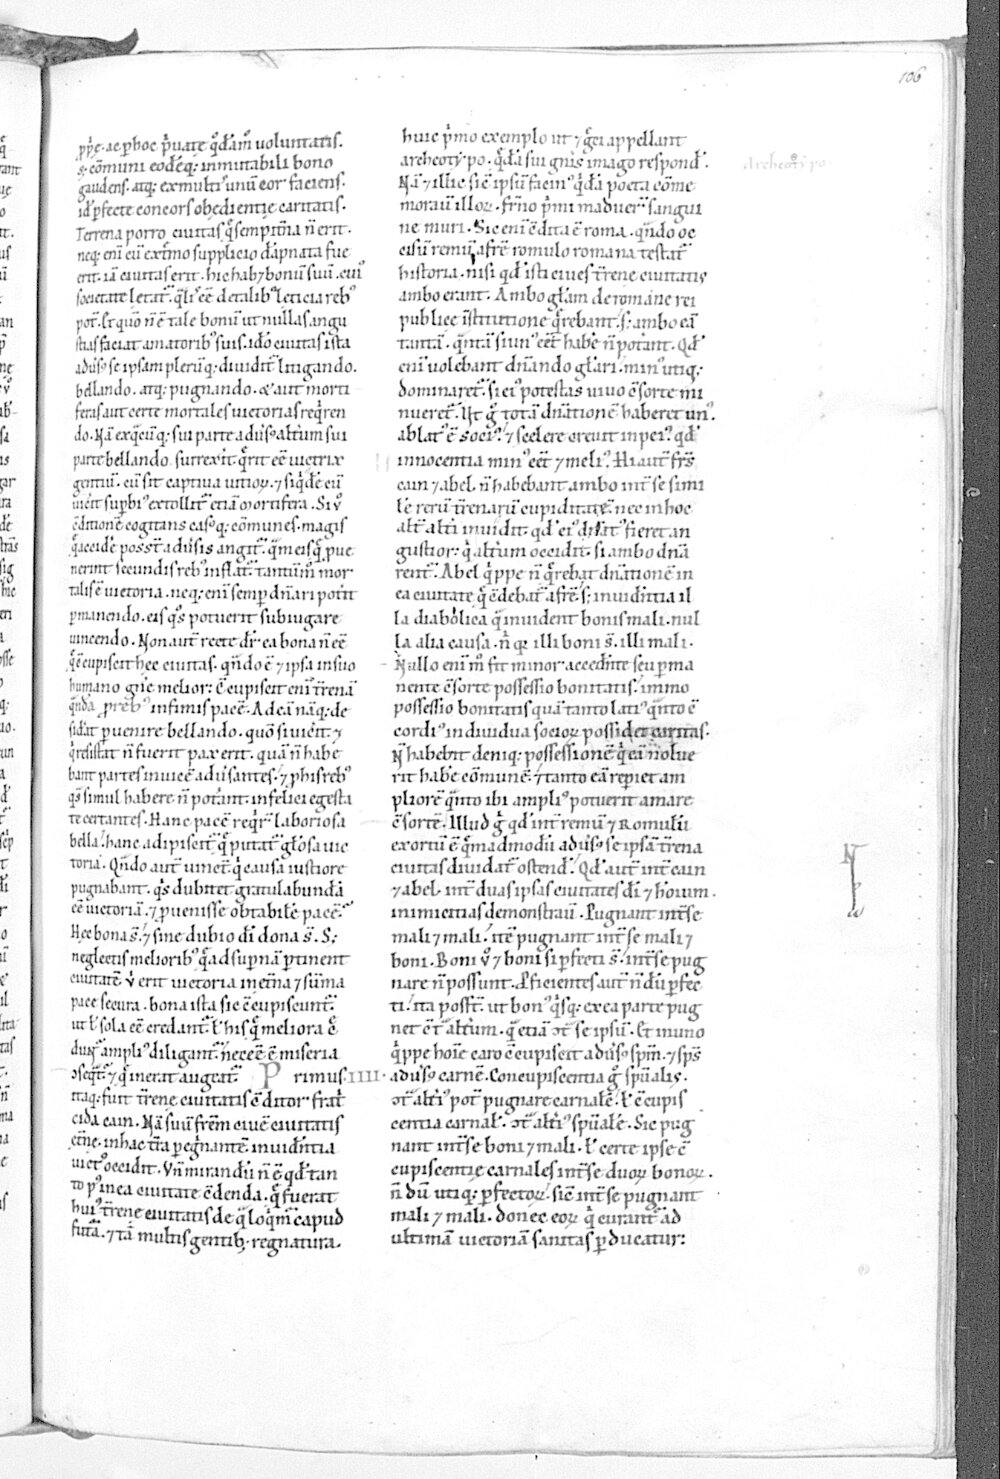 106
pp̄e. ac p̱hoc p̄uate qͦdāmͦ uoluntatis.
s; cōmuni eodēq; inmutabili bono
gaudens. atq; ex multis unū cor faciens.
id ē p̱fecte concors obedientię caritatis.
Terrena porro ciuitas q̄ sempit̄na n̄ erit.
neq; eni cū extͥmo supplicio dāpnata fue
erit. iā ciuitas erit. hic hab& bonū suū. cuiꝰ
societate letat̄. q̄lis eē de talibꝰ leticia rebꝰ
pot̄. Et quō n̄ ē tale bonū ut nullas angu
stias faciat amatoribꝰ suis. ideo ciuitas ista
aduͥsꝰ se ipsam plerūq; diuidit̄ litigando.
bellando. atq; pugnando. & aut morti
feras aut certe mortales uictorias req̄ren
do. Nā ex q̄cūq; sui parte aduͥsꝰ alt̄am sui
parte bellando surrexit. q̄rit eē uictrix
gentiū. cū sit captiua uitioꝝ. ⁊ siq̄dē cū
uicit sup̱biꝰ extollit̄ etiā mortifera. Si ū
c̄ditionē cogitans casꝰq; cōmunes. magis
q̄ accidēe poss̄t aduͥsis angit̄. q̄m eis q̄ pue
nerint secundis rebꝰ inflat̄. tantūm mor
talis ē uictoria. neq; eni semp̱ dn̄ari potit
p̱manendo. eis qͦs potuerit subiugare
uincendo. Non aut̄ recte dr̄ ea bona n̄ eē
q̄ c̄cupiscit hec ciuitas. qn̄do ē ⁊ ipsa in suo
humano gn̄e melior: c̄cupiscit eni t̄renā
q̄ndā p̱ rebꝰ infimis pacē. Ad eā nāq; de
sid̄at p̱uenire bellando. quō si uicit̄. ⁊
q̄ resistat n̄ fuerit pax erit. quā n̄ habe
bant partes inuicē aduͥsantes. ⁊ p̱ his rebꝰ
qͣs simul habere n̄ pot̄ant. infelici egesta
te certantes. Hanc pacē req̄r̄t laboriosa
bella. hanc adipiscit̄ q̄ putat̄ gl̄osa uic
toria. Qn̄do aut̄ uincēt q̄ causa iustiore
pugnabant. qͥs dubitet gratulabundā
eē uictoriā. ⁊ p̱uenisse obtabilē pacē.
Hec bona s̄. ⁊ sine dubio dī dona s̄. S;
neglectis melioribꝰ q̄ ad sup̱nā p̱tinent
ciuitatē. ū erit uictoria in et̄na ⁊ sūma
pace secura. bona ista sic c̄cupiscunt̄.
ut ł sola eē credant̄. ł his q̄ meliora c̄
dunt̄ ampliꝰ diligant̄. necēe ē miseria
ɔseq̄t̄. ⁊ q̄ inerat augeat̄. Primus. IIII.
itaq; fuit t̄rene ciuitatis c̄ditor frat̄
cida cain. Nā suū fr̄em ciuē ciuitatis
et̄nę. in hac t̄ra pegͥnantē. inuidͥntia
uictꝰ occidit. Vn̄ mirandū n̄ ē qd̄ tan
to pꝰ in ea ciuitate c̄denda. q̄ fuerat
huiꝰ t̄rene ciuitatis de q̄ loqͥm̄ capud
futā. ⁊ tā multis gentibꝫ regnatura.
huic pͥmo exemplo ut ⁊ gͤci appellant
archeotẏpo. q̄dā sui gn̄is imago respond̄.
Nā ⁊ illic sic̄ ipsū facinꝰ q̄dā poeta cōme
morauͥ illoꝝ. fr̄no pͥmi maduer̄ sangui
ne muri. Sic eni c̄dita ē roma. qn̄do oc
cisū remū a fr̄e romulo romana testat̄
historia. nisi qd̄ isti ciues t̄rene ciuitatis
ambo erant. Ambo gl̄am de romane rei
publice īstitutione q̄rebant. s; ambo eā
tantā. q̄ntā si unꝰ eēt habē n̄ pot̄ant. Qd̄
eni uolebant dn̄ando gl̄ari. minꝰ utiq;
dominaret̄. si eiꝰ potestas uiuo c̄sorte mi
nueret̄. Ut g̊ totā dn̄ationē haberet unꝰ.
ablatꝰ ē sociꝰ. ⁊ scelere creuit in peiꝰ. qd̄
innocentia minꝰ eēt ⁊ meliꝰ. Hi aut̄ fr̄s
cain ⁊ abel. n̄ habebant ambo int̄ se simi
lē rerū t̄renarū cupiditatē. nec in hoc
alt̄ alt̄i inuidit. qd̄ eiꝰ dn̄atꝰ fieret an
gustior: q̄ alt̄um occidit. si ambo dn̄a
rent̄. Abel q̄ppe n̄ q̄rebat dn̄ationē in
ea ciuitate q̄ c̄debat̄ a fr̄e. s; inuidͥntia il
la diabolica q̄ inuident bonis mali. nul
la alia causa. n̄ qꝛ illi boni s̄. illi mali.
Nullo eni mͦ fit minor accedͥnte seu p̱ma
nente c̄sorte possessio bonitatis. immo
possessio bonitatis quā tanto latiꝰ q̄nto c̄
cordiꝰ indiuidua socioꝝ possidet caritas.
N̄ habebit deniq; possessionē q̄ eā noluē
rit habē cōmunē. ⁊ tanto eā rep̱iet am
pliorē q̄nto ibi ampliꝰ potuerit amare
c̄sortē. Illud g̊ qd̄ int̄ remū ⁊ Romulū
exortū ē q̄madmodū aduͥsꝰ se ipsā t̄rena
ciuitas diuidat̄ ostend̄. Qd̄ aut̄ int̄ cain
⁊ abel. int̄ duas ipsas ciuitates dī ⁊ hoīum.
inimicitias demonstrauͥ. Pugnant int̄ se
mali ⁊ mali. itē pugnant int̄ se mali ⁊
boni. Boni ū ⁊ boni si p̱fecti s̄. int̄ se pug
nare n̄ possunt. P̱ficientes aut̄ n̄dū p̱fec
ti. ita poss̄t. ut bonꝰ qͥsq; ex ea parte pug
net ɔt̄ alt̄um. q̄ etiā ɔt̄ se ipsū. Et in uno
q̄ppe hoīe caro c̄cupiscit aduͥsꝰ spm̄. ⁊ sps̄
aduͥsꝰ carnē. Concupiscentia g̊ spūalis.
ɔt̄ alt̄iꝰ pot̄ pugnare carnalē. ł c̄cupis
centia carnal̄. ɔt̄ alt̄iꝰ spūalē. Sic pug
nant int̄ se boni ⁊ mali. ł certe ipse c̄
cupiscentię carnales int̄ se duoꝝ bonoꝝ.
n̄ dū utiq; p̱fectoꝝ. sic̄ int̄ se pugnant
mali ⁊ mali. donec eoꝝ q̄ curant̄ ad
ultimā uictoriā sanitas p̱ducatur:
Archeotẏpo.
N